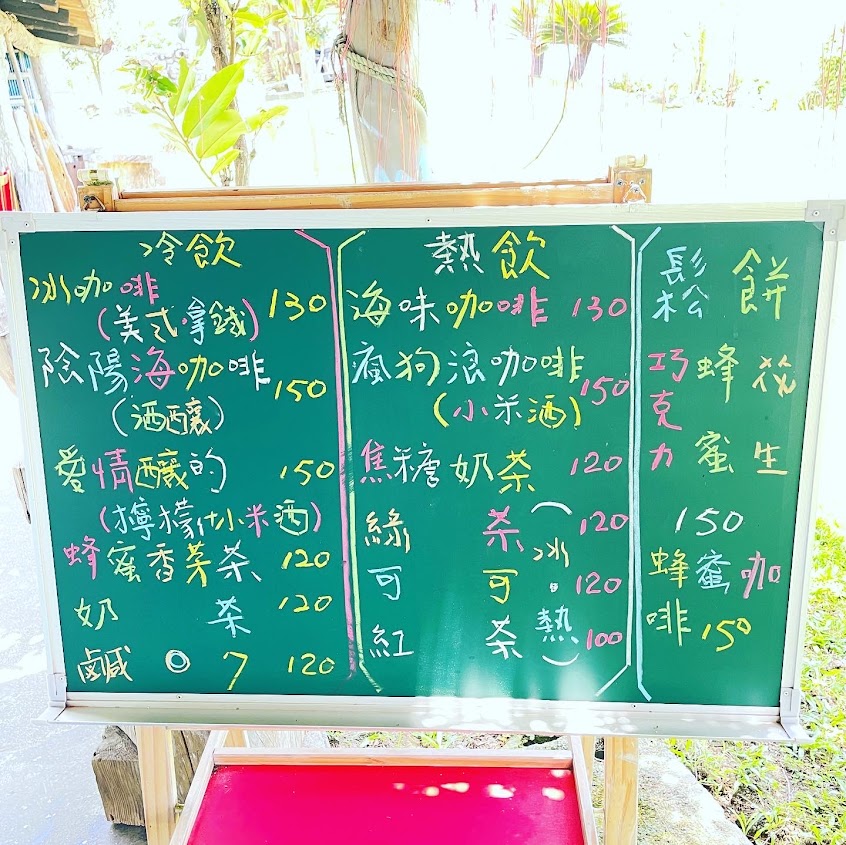 冷飲
冰咖啡 130
(美式·拿鐵)
陰陽海咖啡 150
(酒釀)
愛情釀的 150
(檸檬汁+小米酒)
蜂蜜香茅茶 120
奶 茶 120
鹹 0 7 120
熱飲
海味咖啡 130
瘋狗浪咖啡 150
(小米酒)
焦糖奶茶 120
綠 茶 120
可 可 120
紅 茶 100
(冰·熱)
鬆餅
巧克力
蜂蜜
花生
150
蜂蜜咖
啡 150